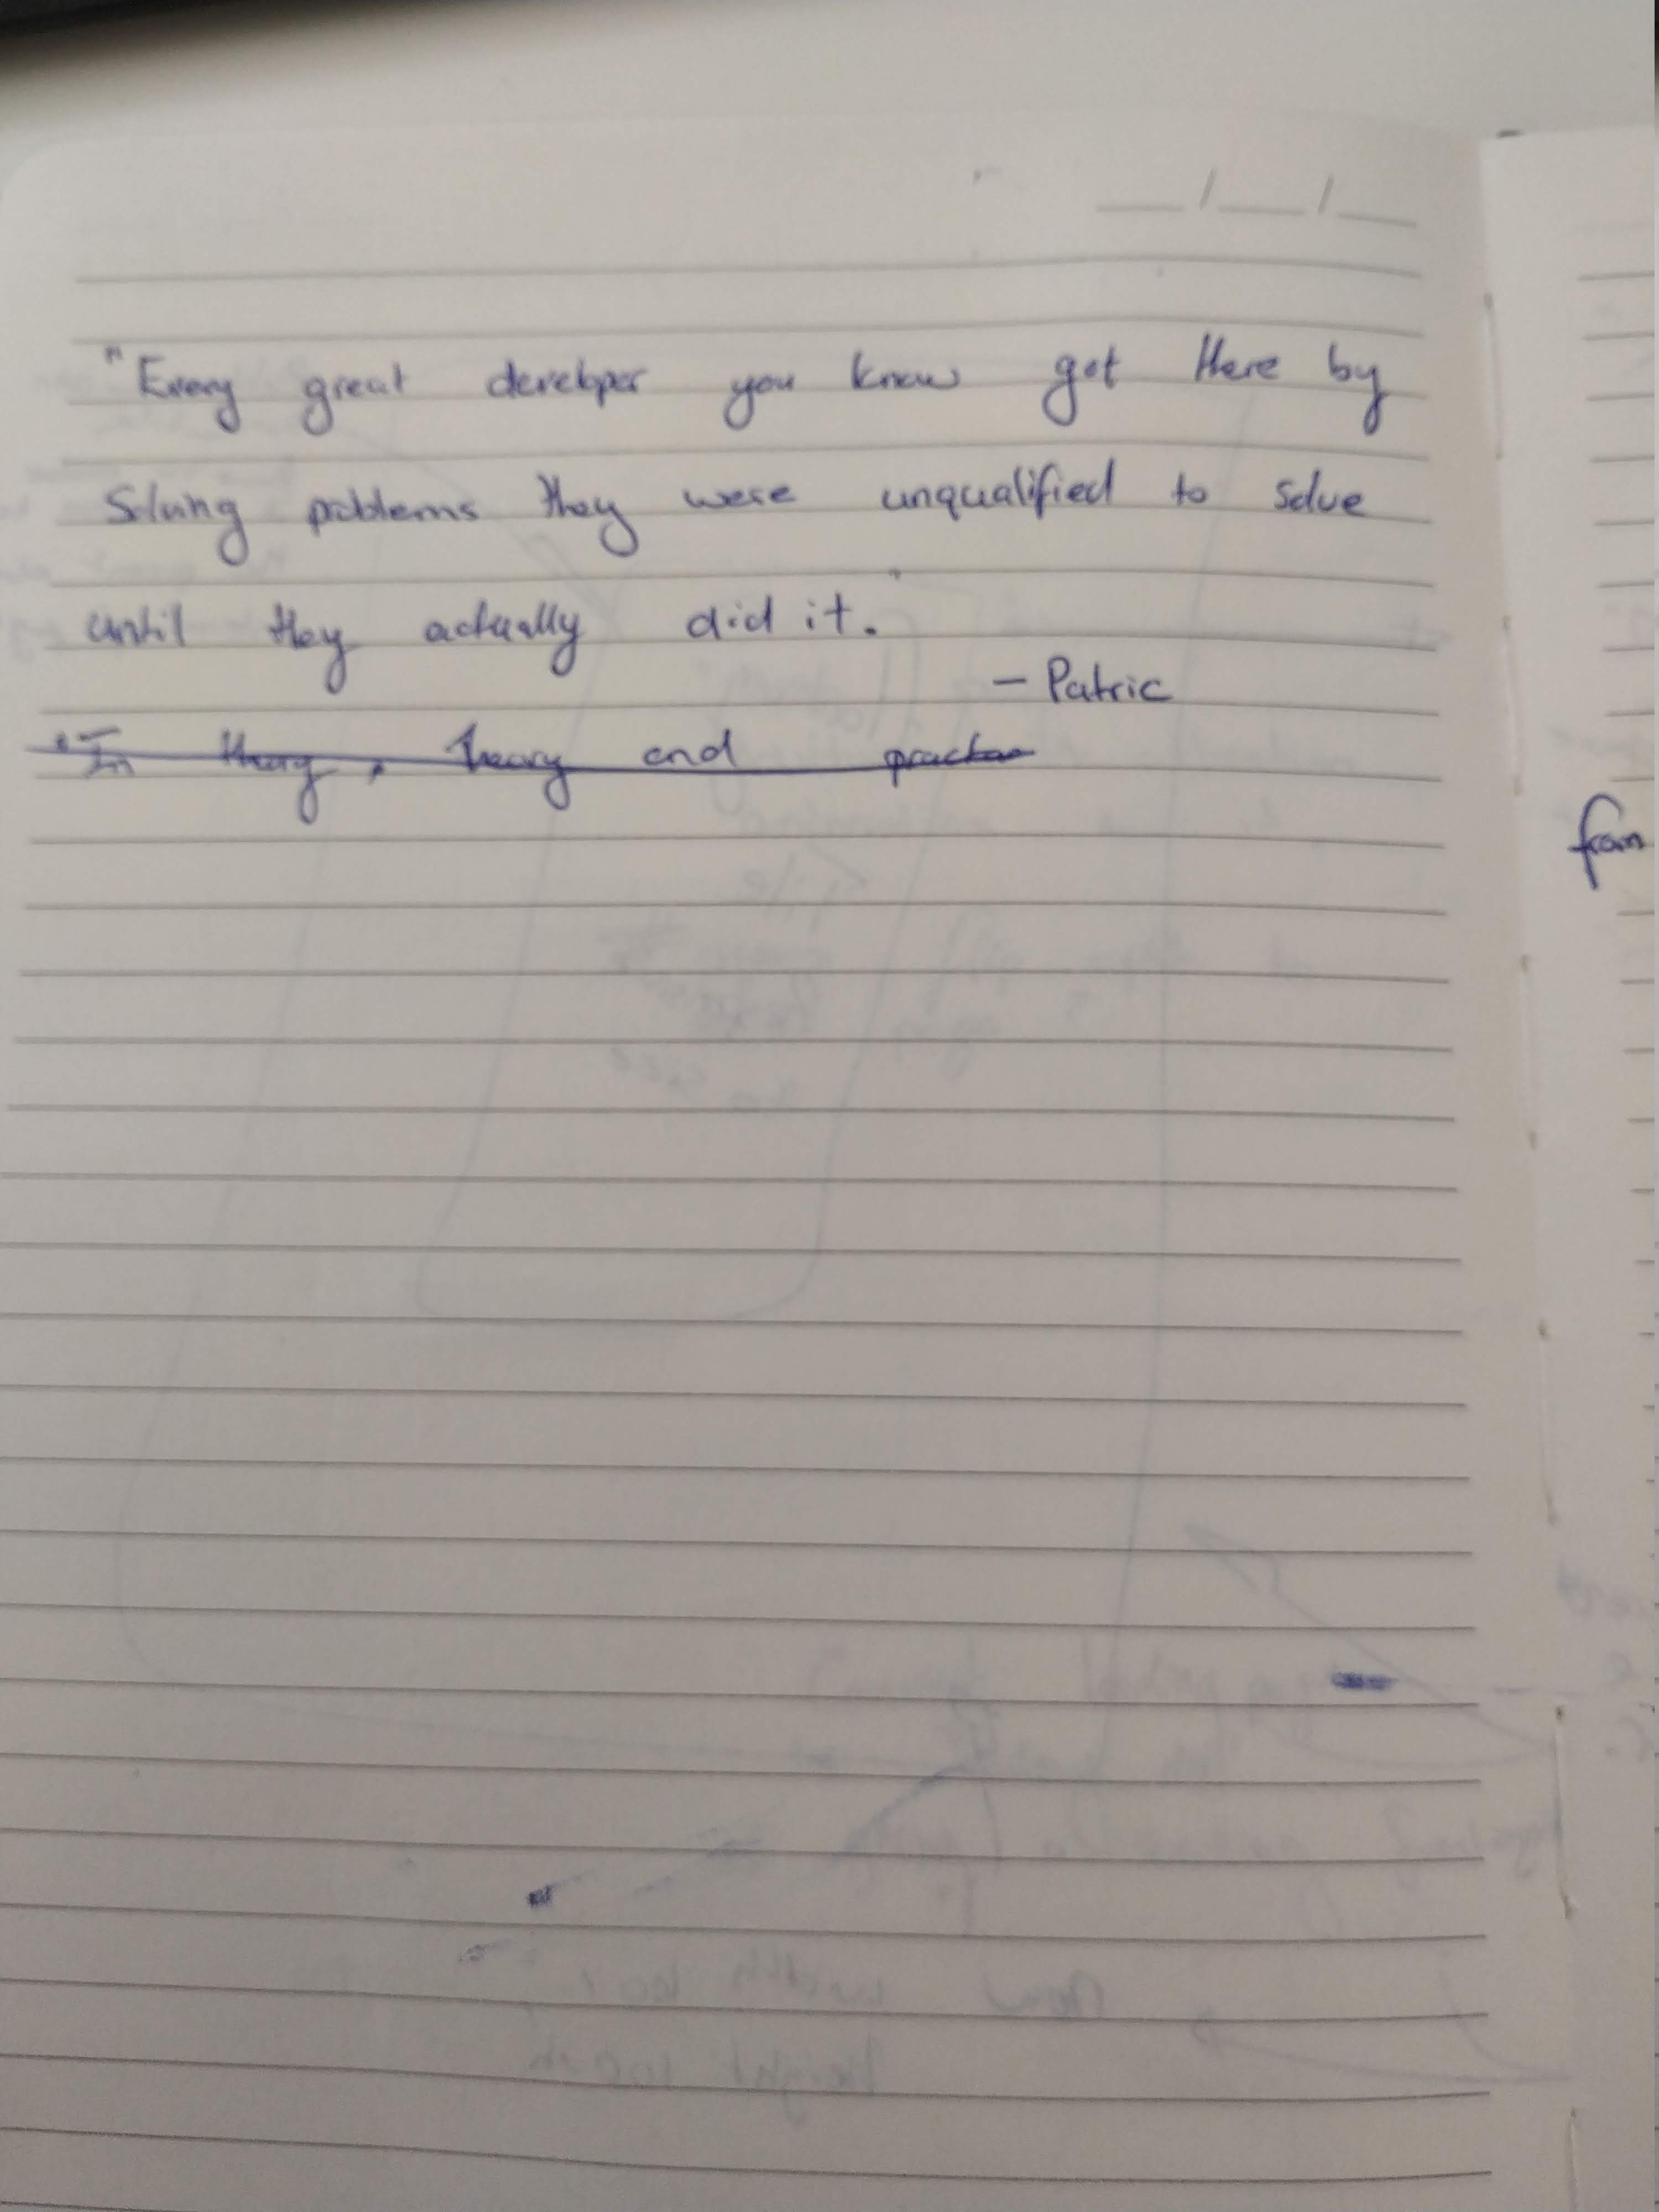 "Every great developer you know got there by
Solving problems they were unqualified to solve
until they actually did it."
- Patric
"In theory, theory and
from